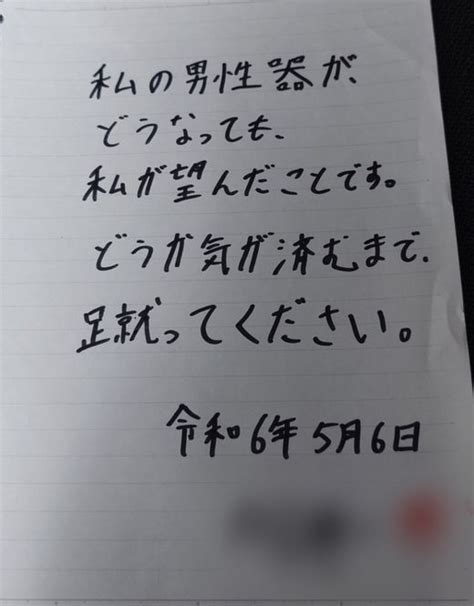 私の男性器が、
どうなっても、
私が望んだことです。
どうか気が済むまで、
足就ってください。
令和6年5月6日